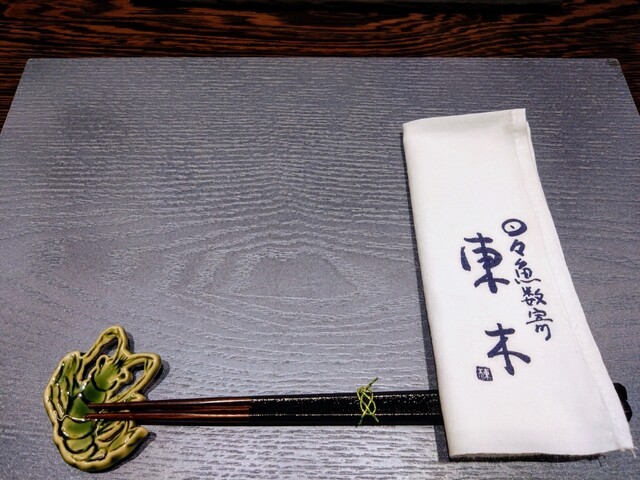 日々魚数寄
東木